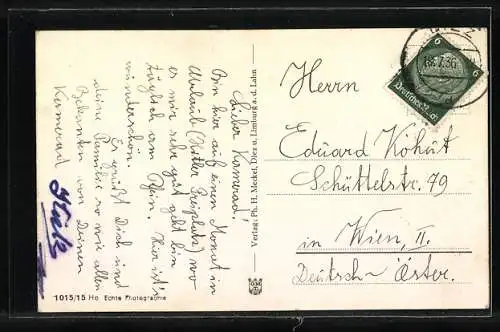 Lieber Kamerad!
Bin hier auf einen Monat in
Urlaub (Hitler Freiplatz) wo
es mir sehr gut geht bin
täglich am Rhein. Hier ist's
wunderschön.
Es grüßt Dich und
deine Familie so wie allen
Bekannten von Deinen
Kamerad
1015/15 Ho Echte Photographie
Verlag: Ph. H. Meckel, Diez u. Limburg a. d. Lahn
6 6
Deutsches Reich
18.7.36
Herrn
Eduard Kohut
Schüttelstr. 79
in Wien, II.
Deutsch-Öster.